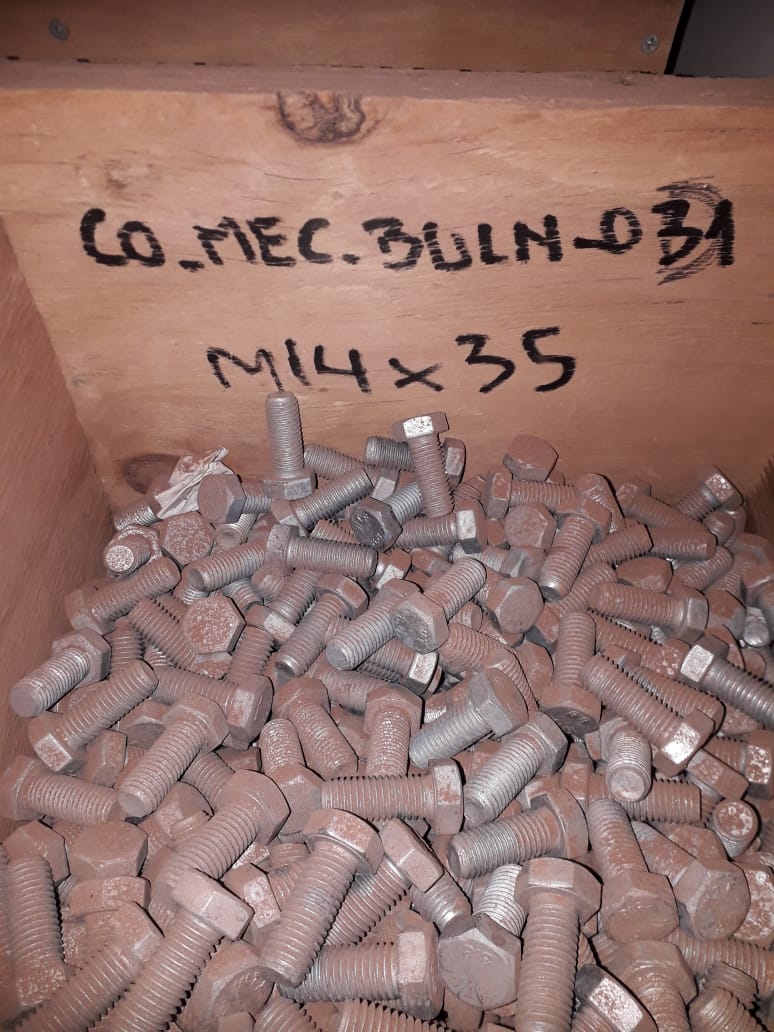 CO_MEC.BULN_031
M14x35